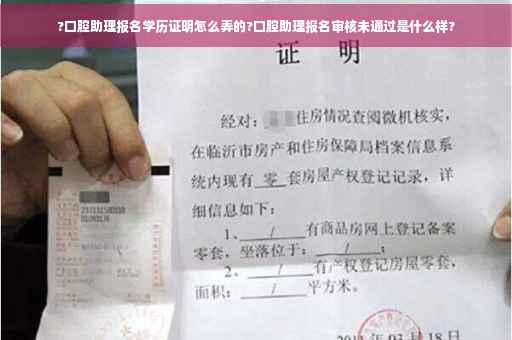 ?口腔助理报名学历证明怎么弄的?口腔助理报名审核未通过是什么样?
证 明
经对: 住房情况查阅微机核实,
在临沂市房产和住房保障局档案信息系
统内现有 零 套房屋产权登记记录,详
细信息如下:
1、 / 有商品房网上登记备案
零套,坐落位于: / ;
2、 / 有产权登记房屋零套,
面积: / 平方米。
03 月 18 日